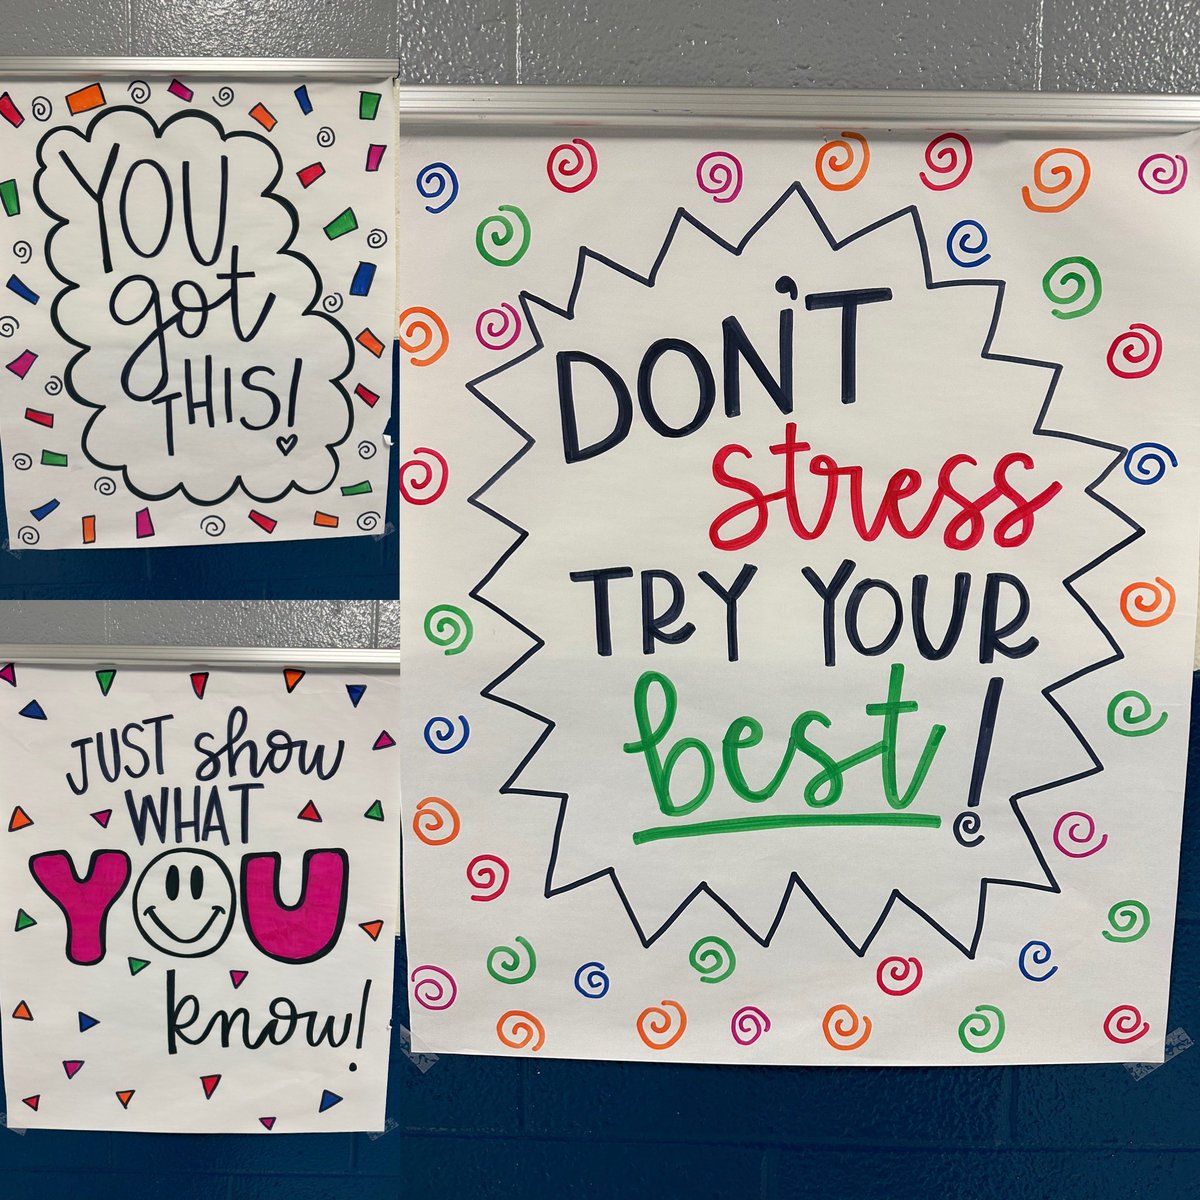 YOU
got
THIS!
JUST show
WHAT
YOU
know!
DON'T
stress
TRY YOUR
best!